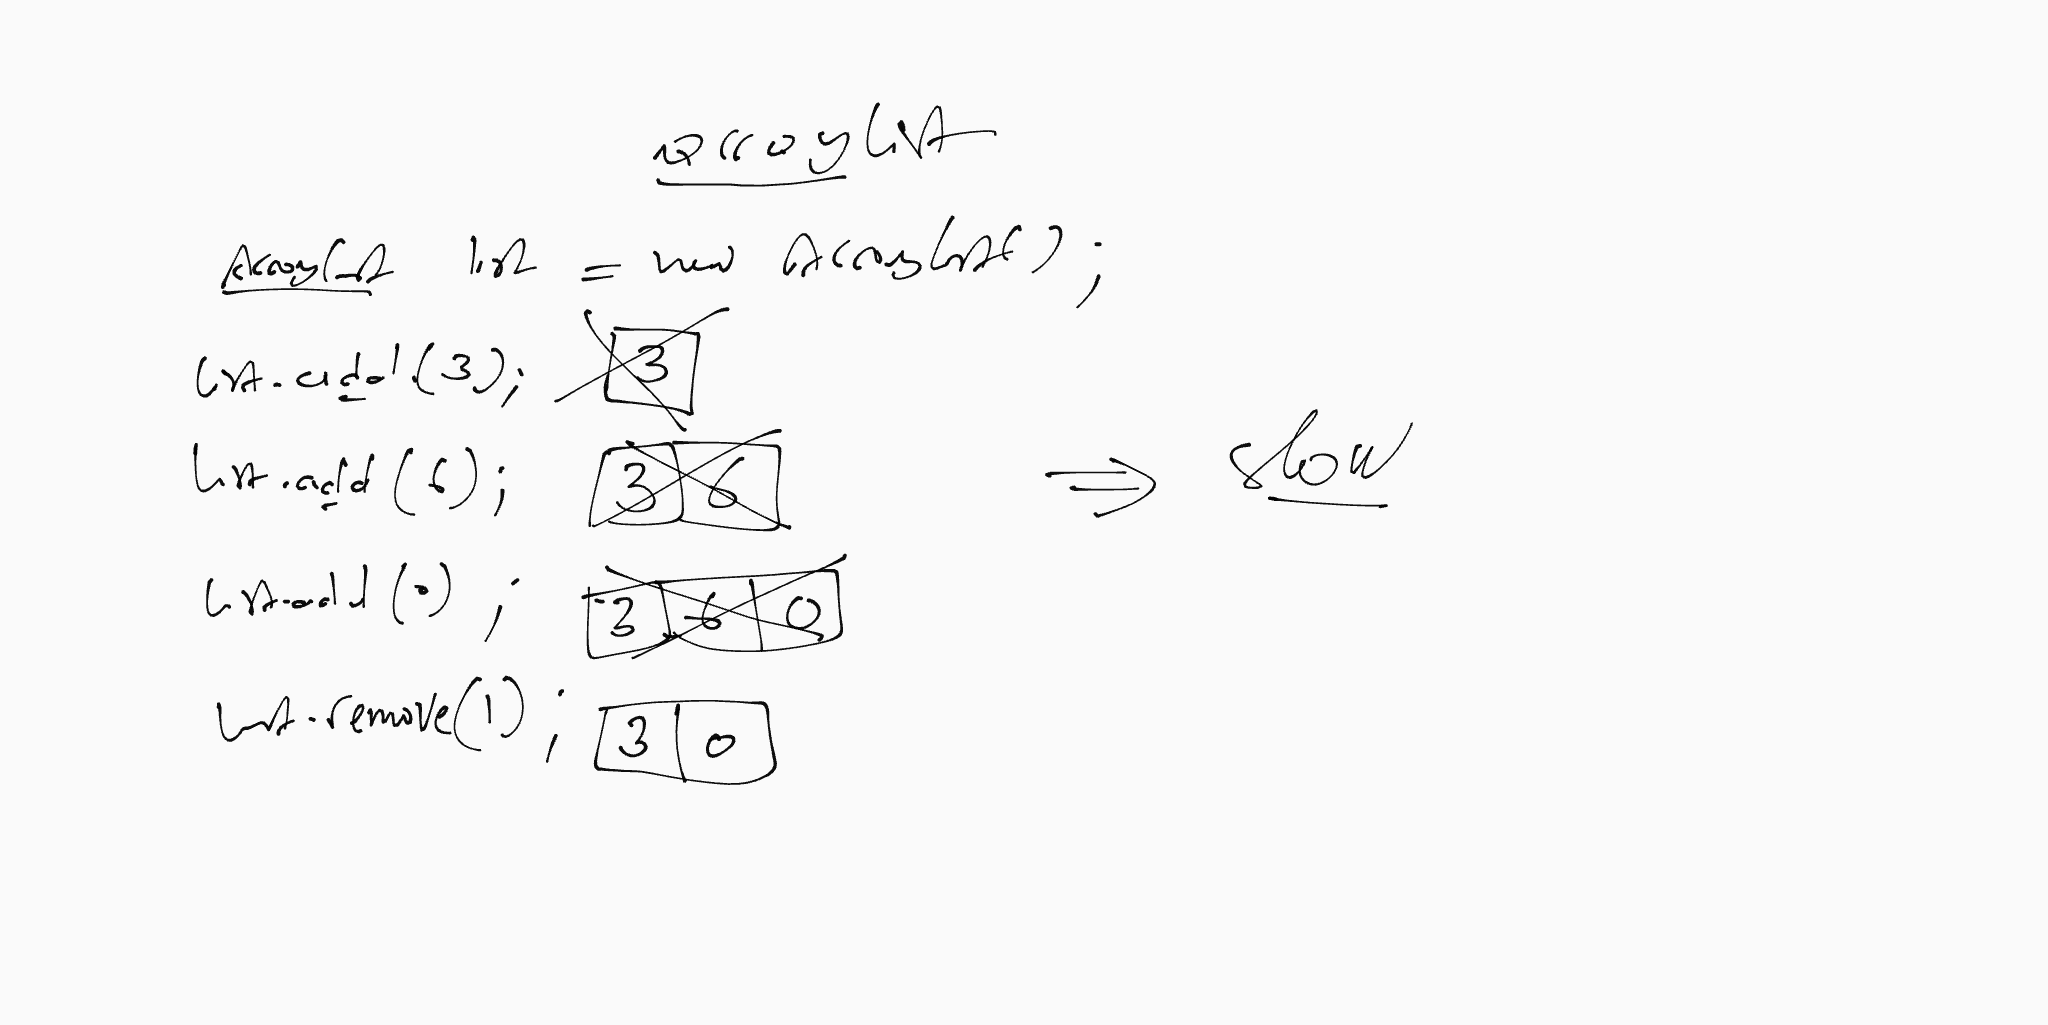 arraylist
Arraylist list = new Arraylist();
list.add(3); 3
list.add(6); 3 6
=> slow
list.add(0); 3 6 0
list.remove(1); 3 0